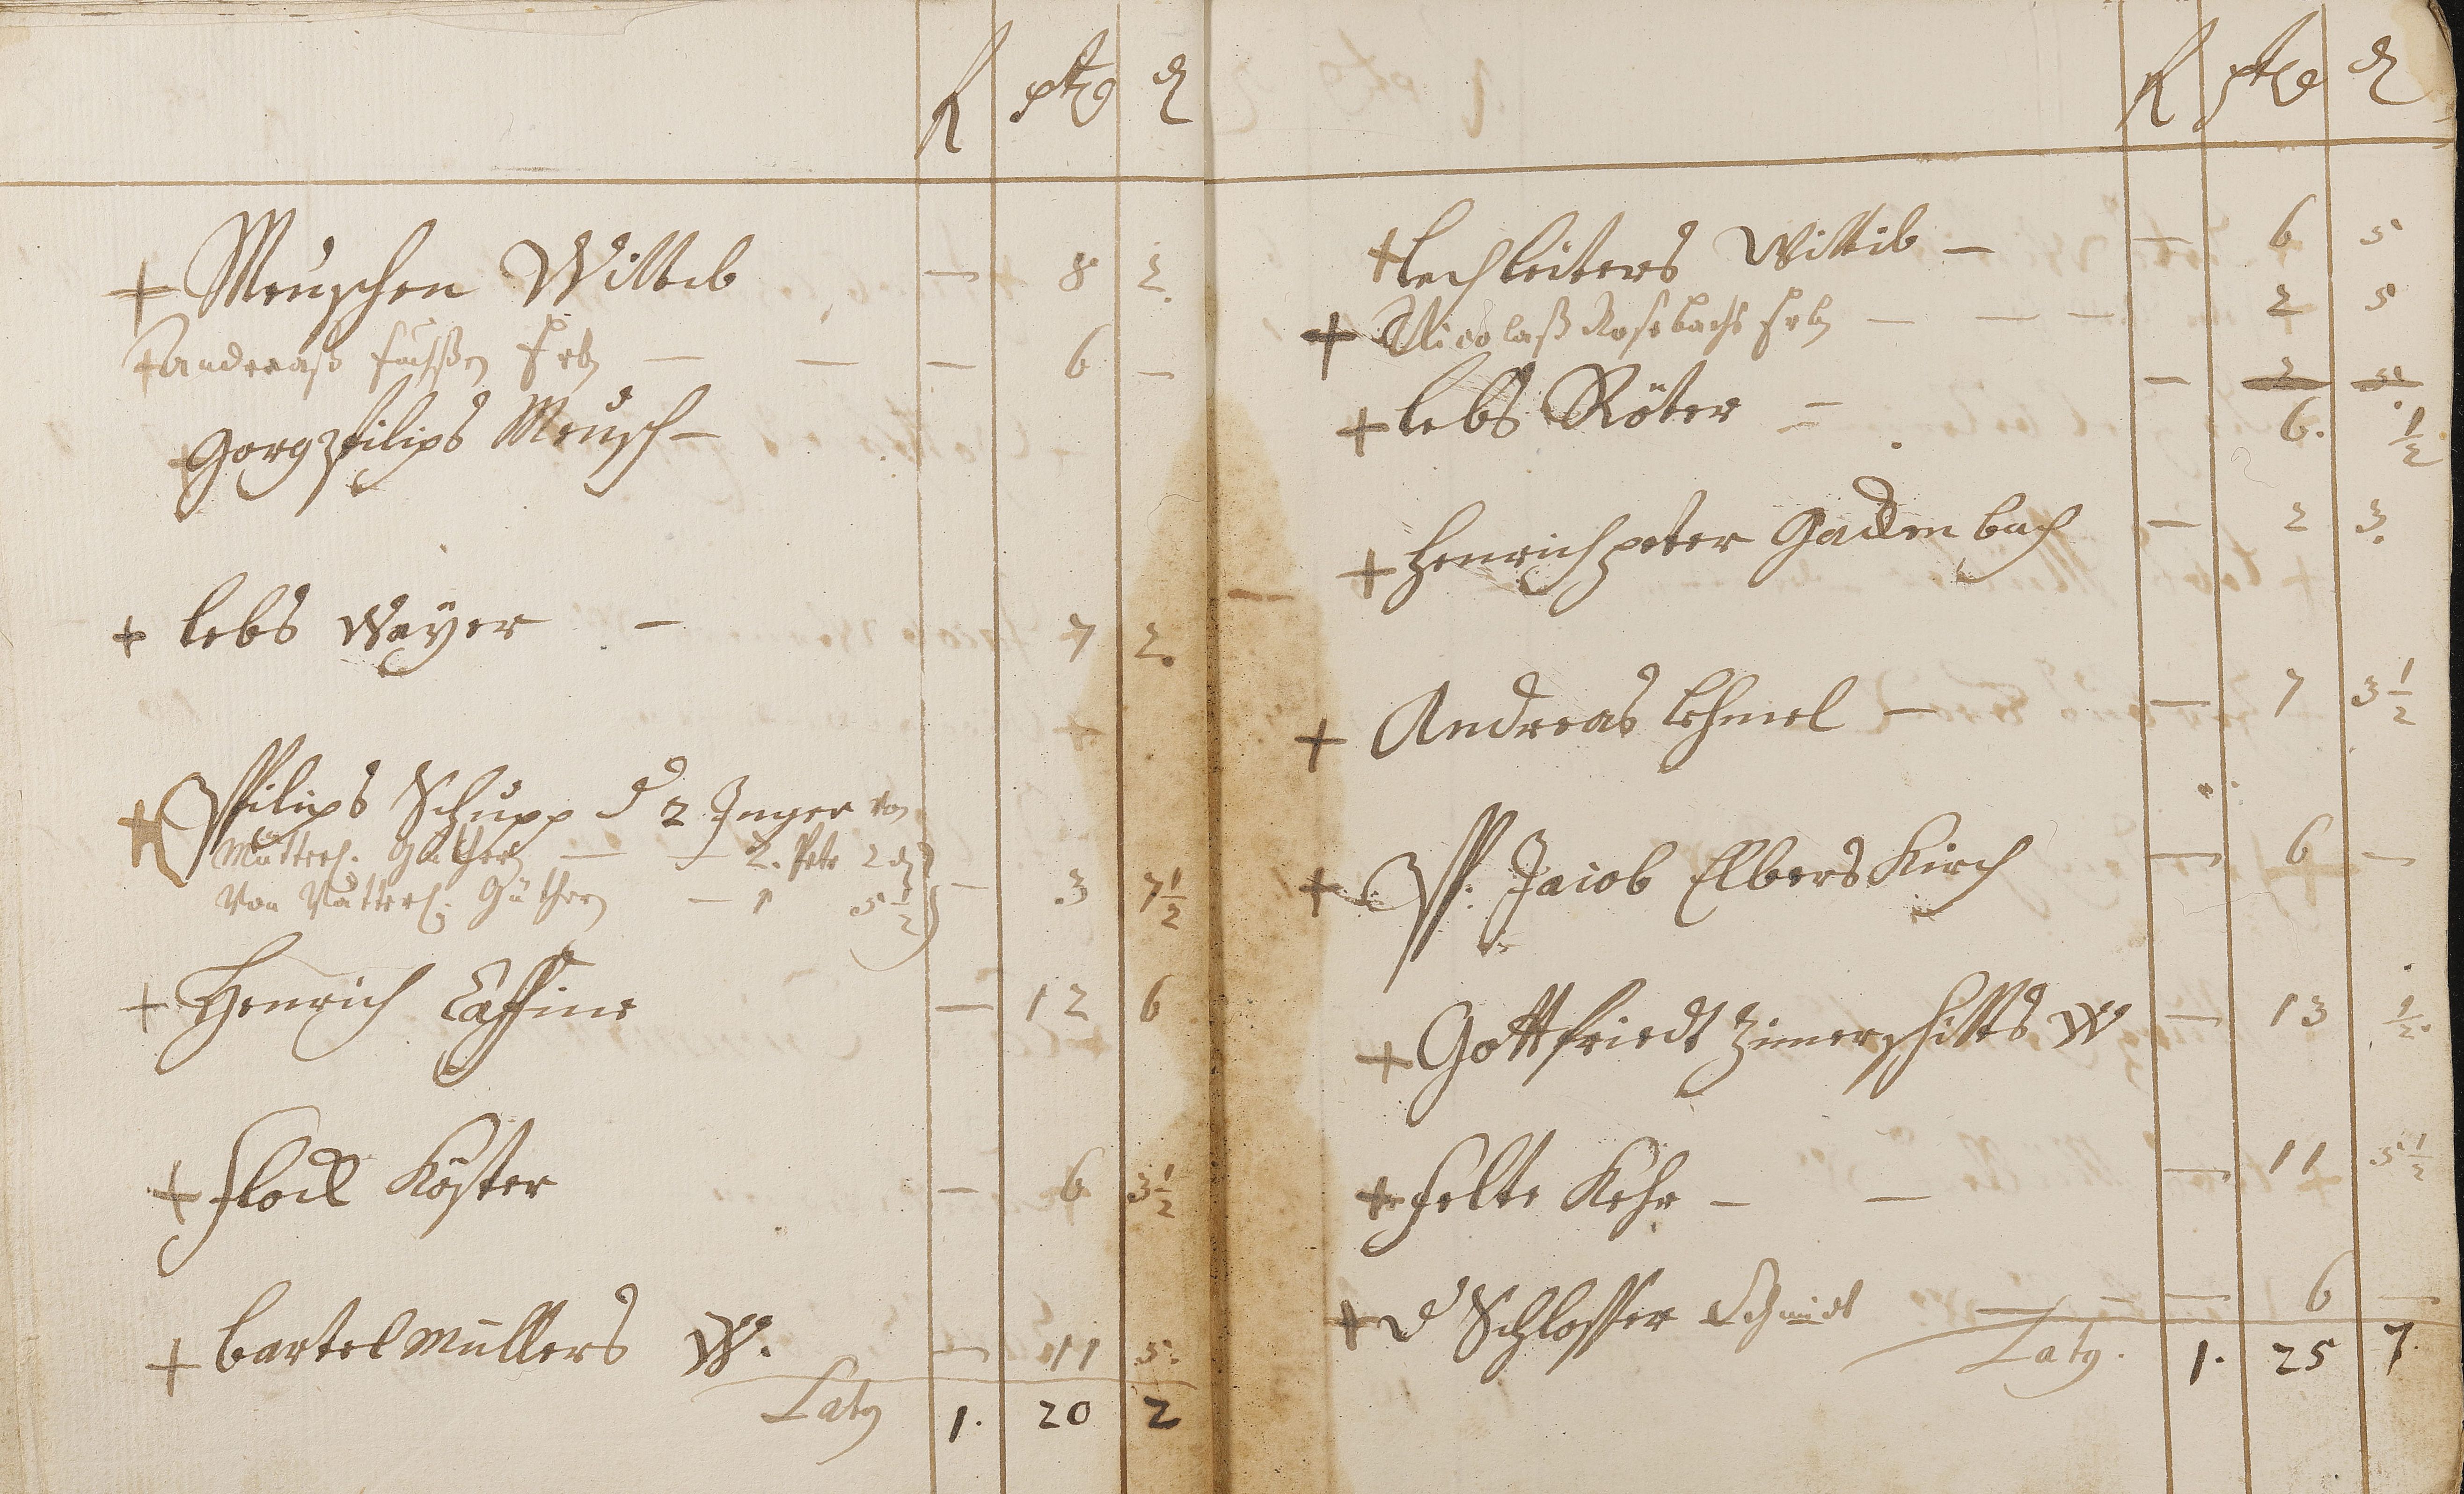 R ptz d
+ Meuschen Wittib — 8 2.
+ andreas fuchßen Erb — — — 6 —
+ Gorg philips Meusch —
+ lebs Mayer — 7 2.
+ Philips Schupp d 2 Jnger von
Mütterl. Güthern — — 2. Petr 2 d
Von Vatterl. Güthern — 1 5 1/2 — 3 7 1/2
+ Henrich — 12 6
+ Köster — 6 3 1/2
+ bartel müllers W. — 11 5.
Lat9 1. 20 2
R ptz d
+ lechleiters Wittib — — 6 5
+ Nicolaß Rosebachs Erb — — — 2 5
+ lebs Röter — — 2 5.
6. 1/2
+ Henrich peter Gackenbach — 2 3.
+ Andreas lehmel — — 7 3 1/2
+ Ph. Jacob Elberskirch — 6 —
+ Gottfriedt Zimerschitts W — 13 1/2.
+ felte Kehr — — — 11 5 1/2
+ d Schlosser Schmidt — — — 6 —
Lat9. 1. 25 7.